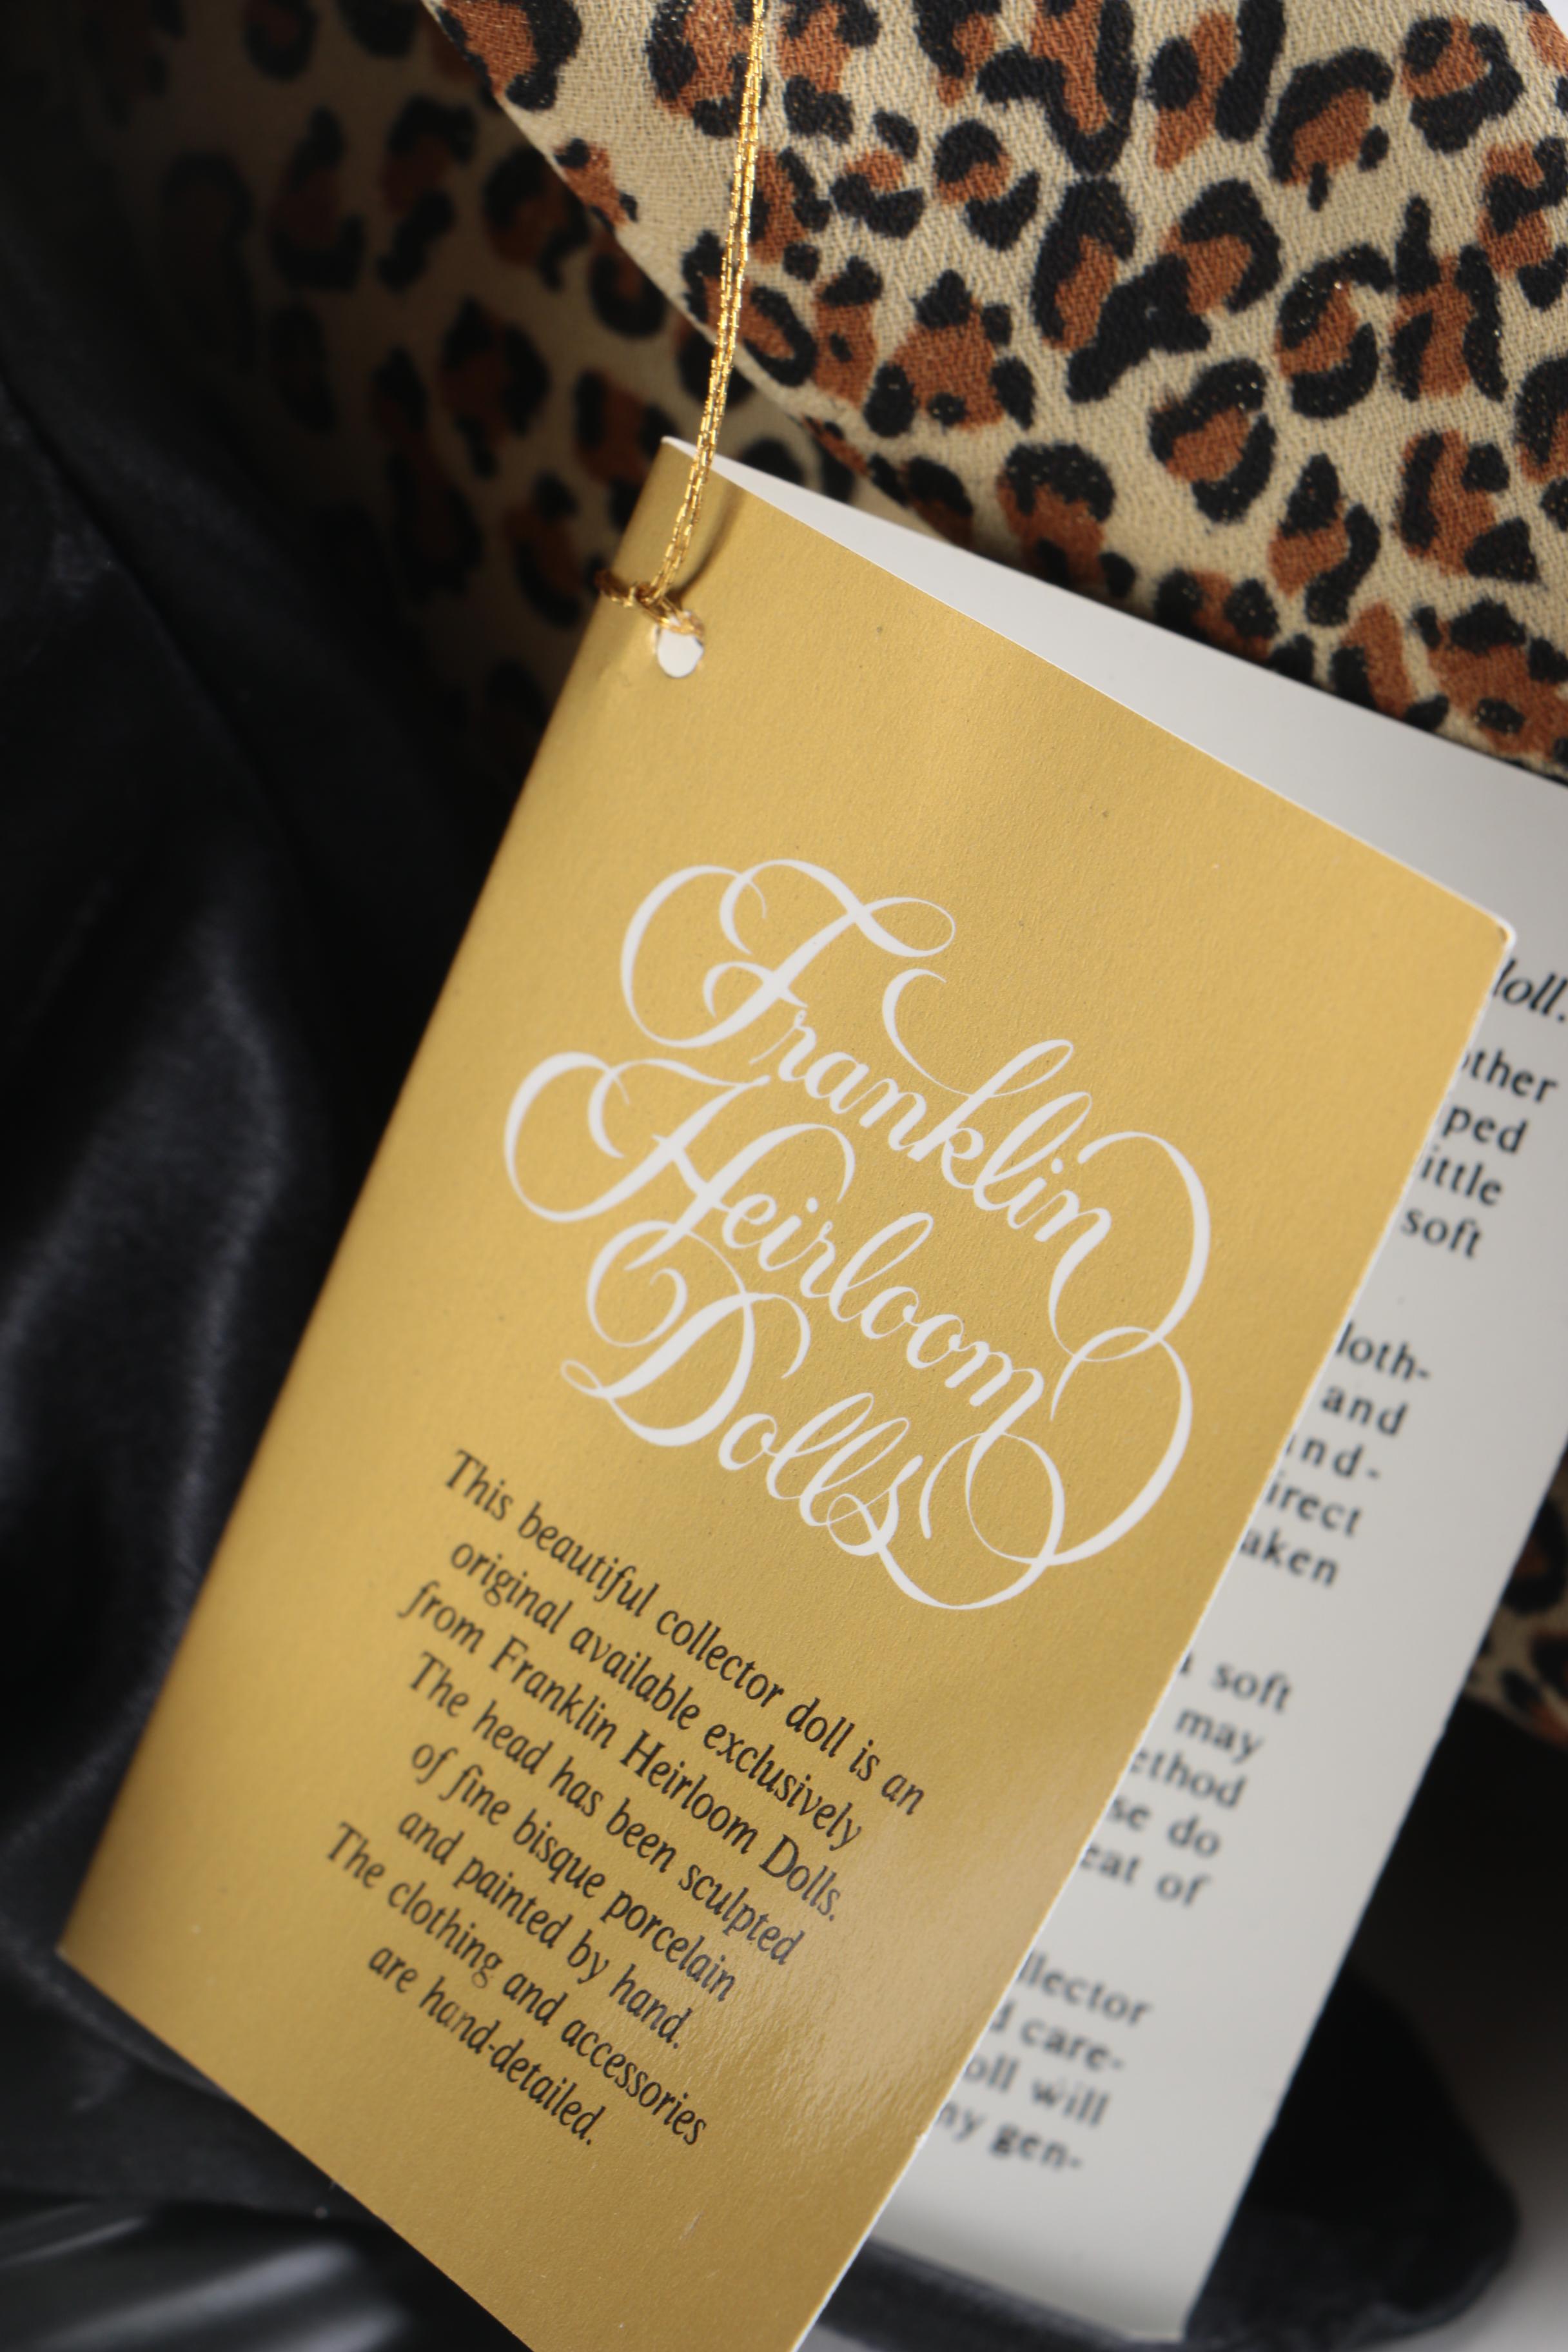 Franklin
Heirloom
Dolls
This beautiful collector doll is an
original available exclusively
from Franklin Heirloom Dolls.
The head has been sculpted
of fine bisque porcelain
and painted by hand.
The clothing and accessories
are hand-detailed.
soft
and
soft
may
do
of
care-
will
gen-